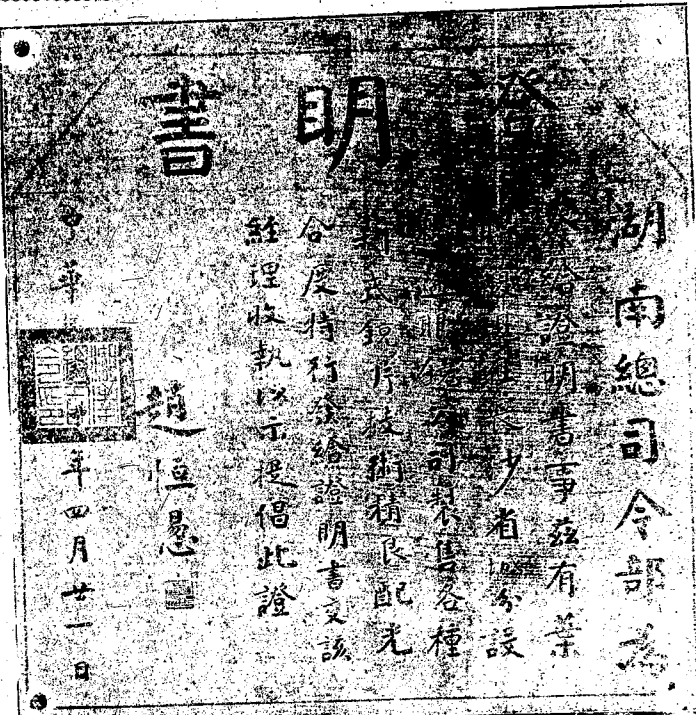 證明書
湖南總司令部為
發給證明書事茲有葉
少省城分設
明 公司製售各種
新式鏡片技術精良配光
合度特行發給證明書交該
經理收執以示提倡此證
趙恒惕
中華 年四月廿一日